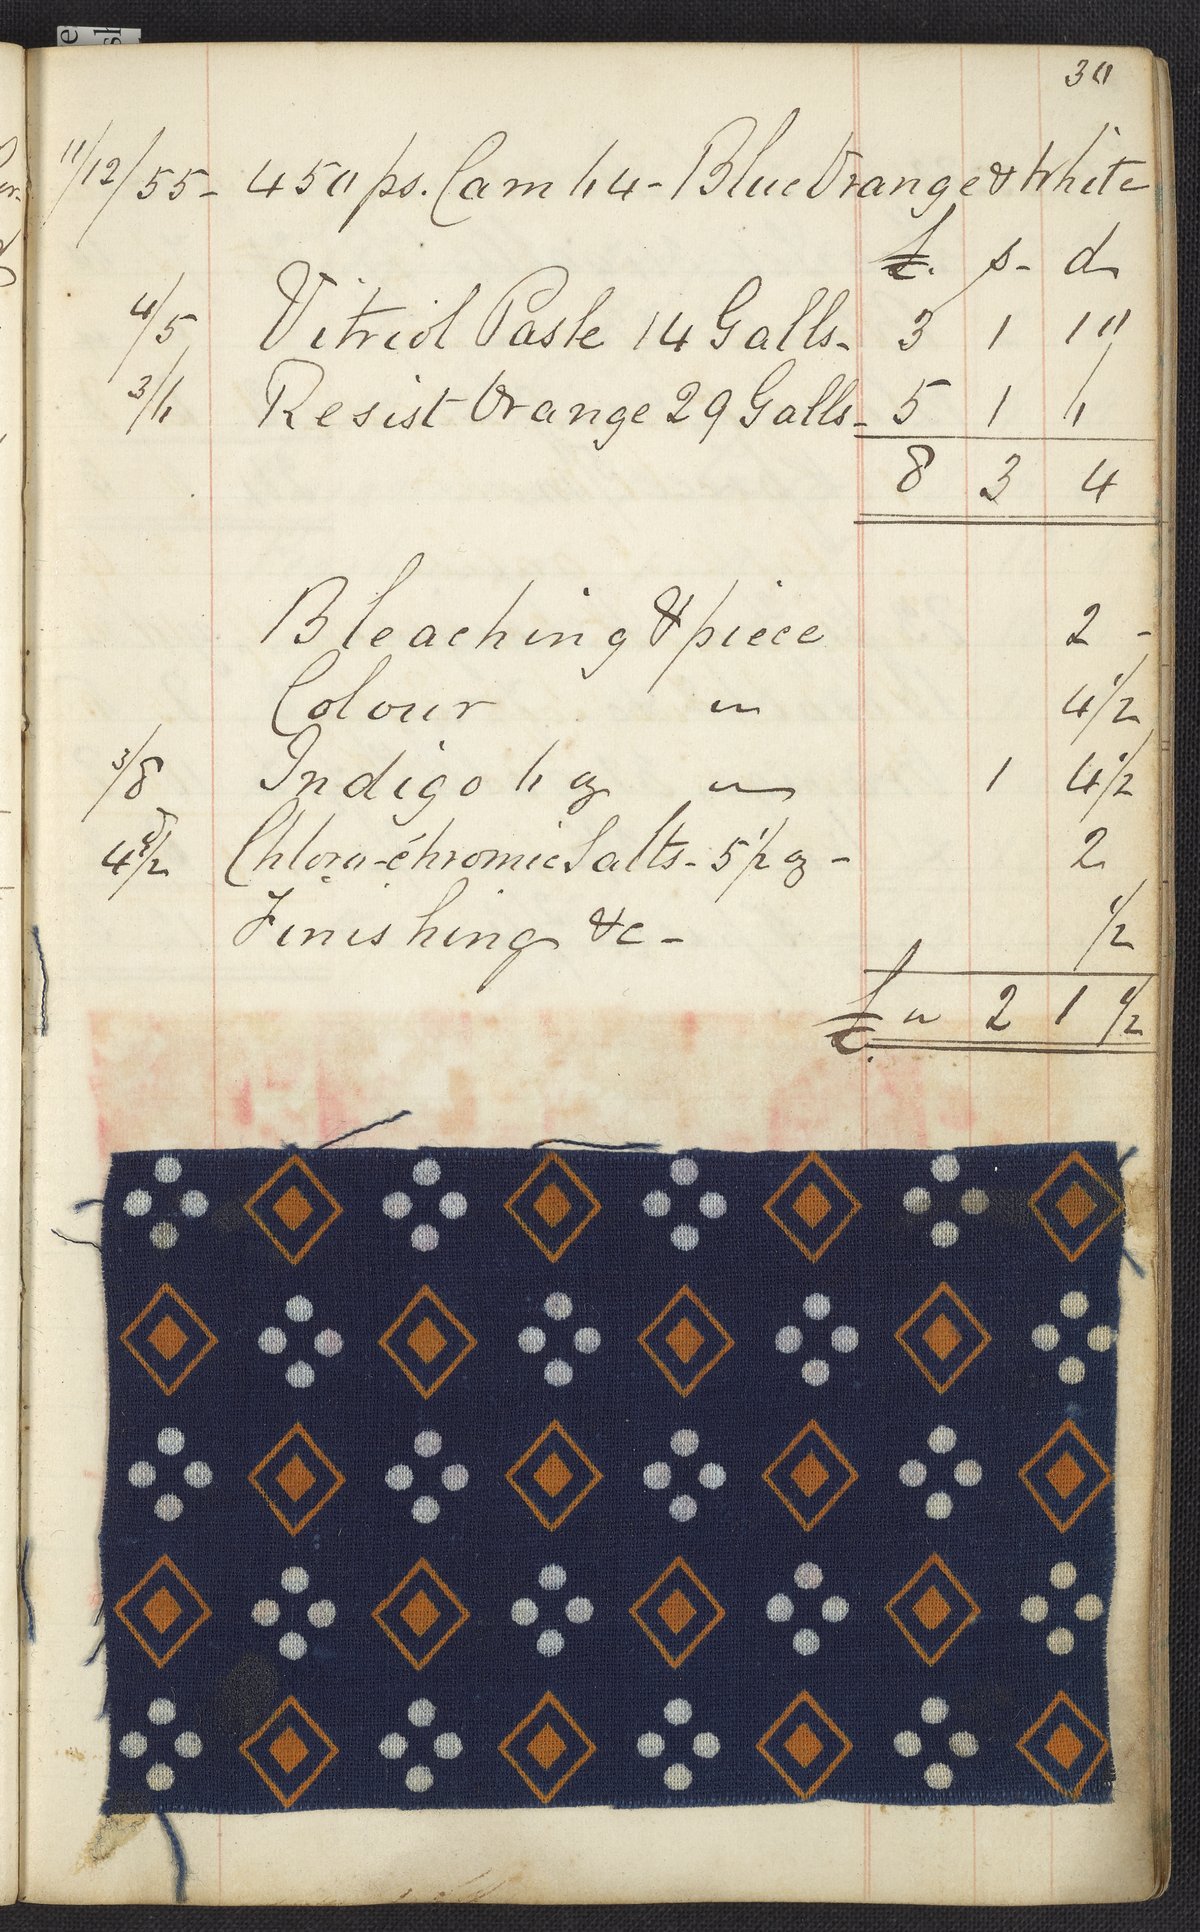 30
11/12/55 - 450 ps. Cam 64 - Blue Orange & White
£. s - d
4/5 Vitriol Paste 14 Galls - 3 1 10
3/6 Resist Orange 29 Galls - 5 1 6
8 3 4
Bleaching ⅌ piece 2 -
Colour " 4 1/2
3/8 Indigo 6 oz " 1 4 1/2
4 1/2 d Chloro-chromic Salts - 5 1/2 oz - 2
Finishing &c - 1/2
£. " 2 1 1/2